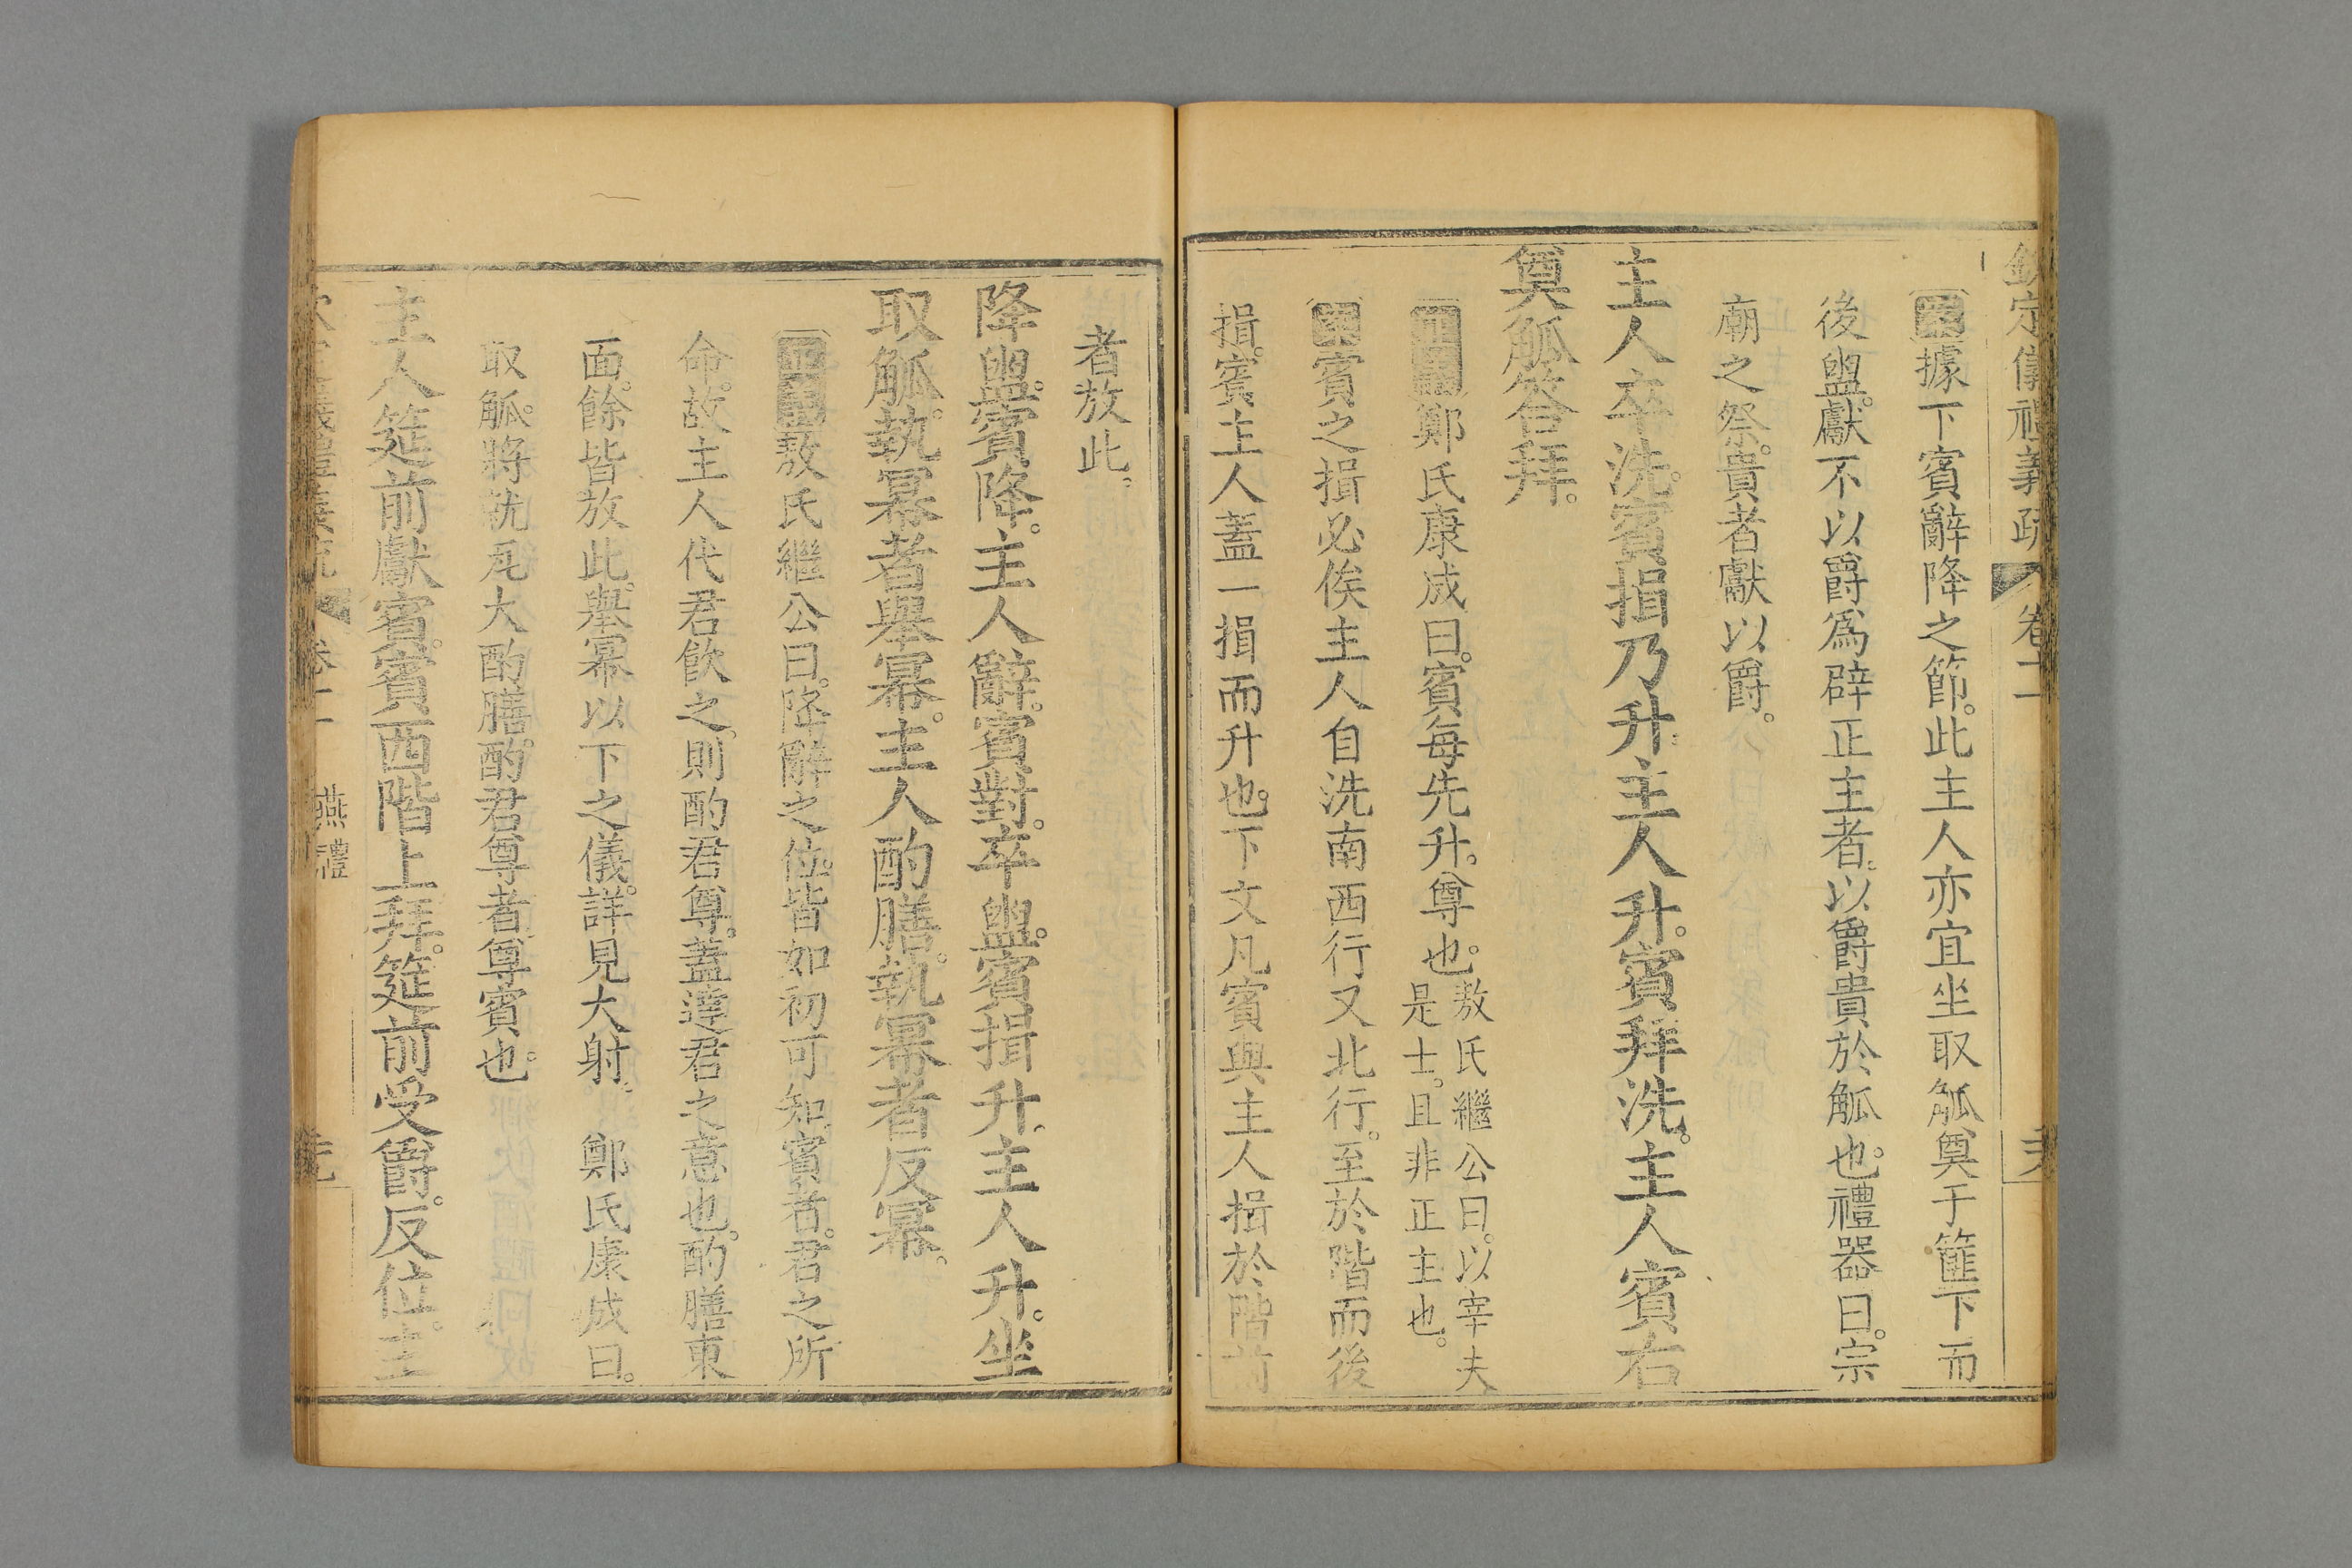 欽定儀禮義疏 卷十一
據下賓辭降之節。此主人亦宜坐取觚奠于篚下而
後盥。獻不以爵爲辟正主者。以爵貴於觚也。禮器曰。宗
廟之祭。貴者獻以爵。
主人卒洗。賓揖乃升。主人升。賓拜洗。主人賓右
奠觚答拜。
鄭氏康成曰。賓每先升。尊也。敖氏繼公曰。以宰夫
是士。且非正主也。
賓之揖必俟主人自洗南西行又北行。至於階而後
揖。賓主人蓋一揖而升也。下文凡賓與主人揖於階前
者放此。
降盥。賓降。主人辭。賓對。卒盥。賓揖升。主人升。坐
取觚。執冪者舉冪。主人酌膳。執冪者反冪。
敖氏繼公曰。降辭之位。皆如初可知。賓者。君之所
命。故主人代君飲之。則酌君尊。蓋達君之意也。酌膳東
面。餘皆放此。舉冪以下之儀。詳見大射。 鄭氏康成曰。
取觚。將就瓦大酌膳。酌君尊者尊賓也。
主人筵前獻賓。賓西階上拜。筵前受爵。反位。主
燕禮